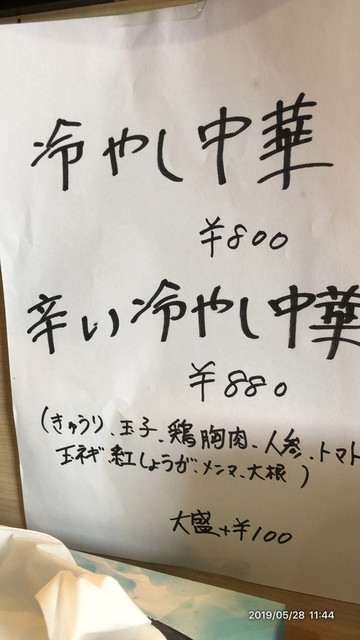 冷やし中華
¥800
辛い冷やし中華
¥880
(きゅうり、玉子、鶏胸肉、人参、トマト
玉ネギ、紅しょうが、メンマ、大根)
大盛+¥100
2019/05/28 11:44